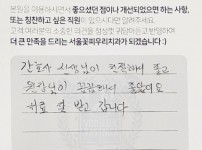 본원을 이용하시면서 좋으셨던 점이나 개선되었으면 하는 사항,
또는 칭찬하고 싶은 직원이 있으시다면 알려주세요.
고객 여러분의 소중한 의견을 경청할
더 큰 만족을 드리는 서울꽃피우리치과가 되겠습니다 :)
간호사 선생님이 친절하여 좋고
원장님이 꼼꼼해서 좋았어요
치료 잘 받고 갑니다